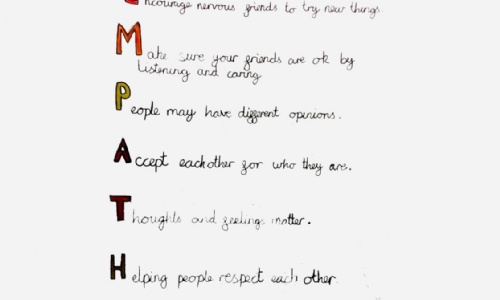 Encourage nervous friends to try new things.
Make sure your friends are ok by
listening and caring
People may have different opinions.
Accept eachother for who they are.
Thoughts and feelings matter.
Helping people respect each other.